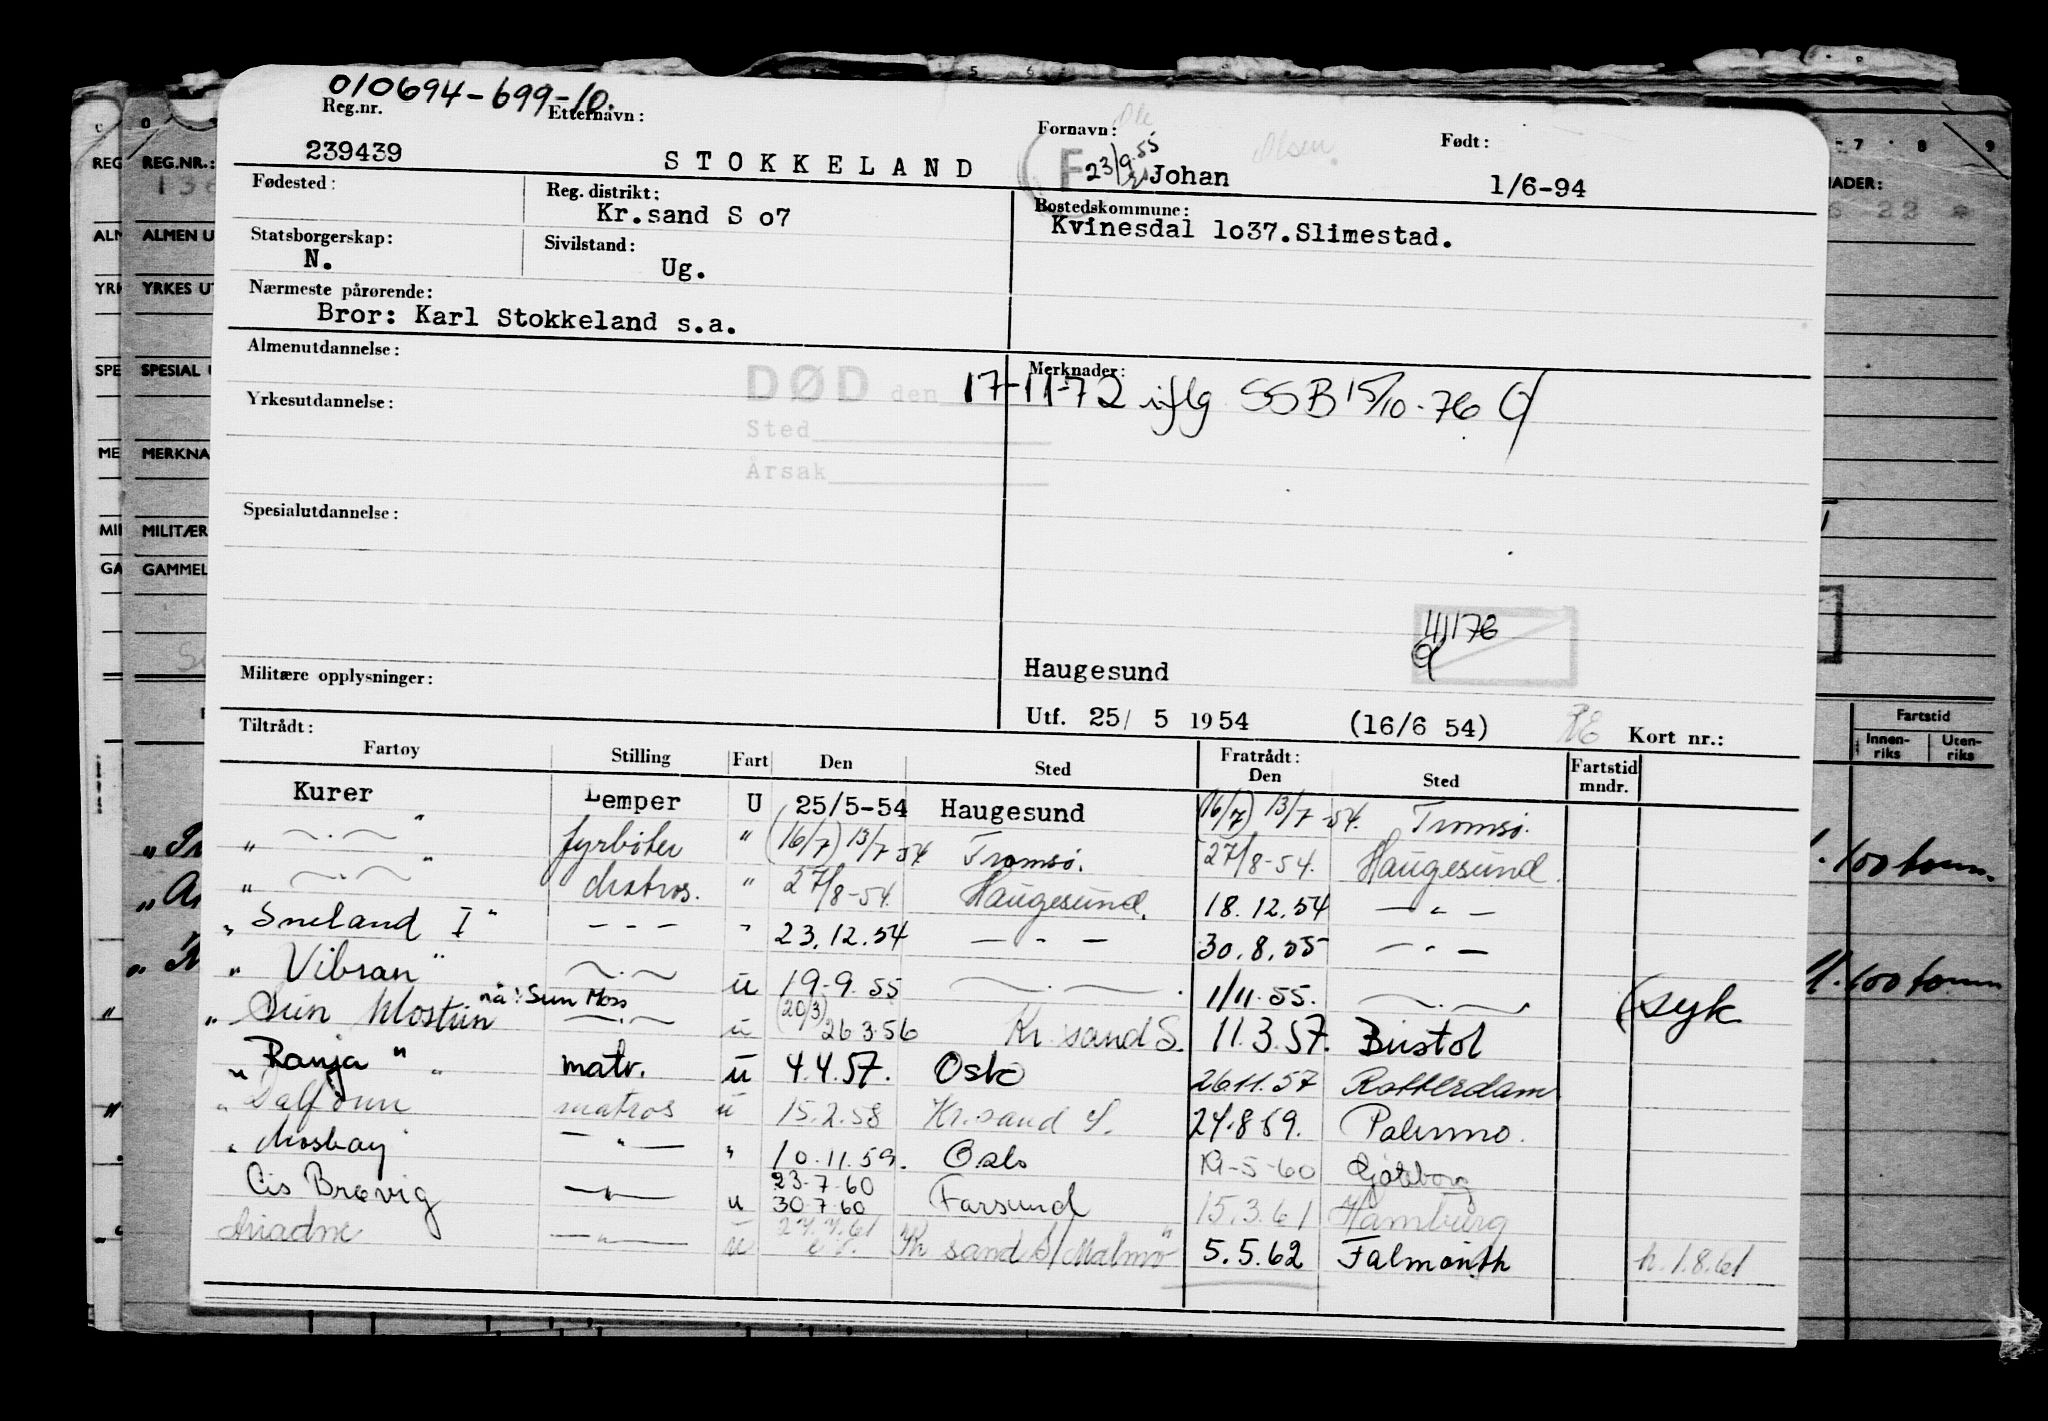 010694-699-10.
Reg.nr. Etternavn: Fornavn: Ole Olsen Født:
239439 STOKKELAND F 23/9.55 Johan 1/6-94
Fødested: Reg. distrikt: Bostedskommune:
Kr.sand S o7 Kvinesdal 1o37.Slimestad.
Statsborgerskap: Sivilstand:
N. Ug.
Nærmeste pårørende:
Bror: Karl Stokkeland s.a.
Almenutdannelse: Merknader:
DØD den 17-11-72 iflg SSB 15/10-76
Yrkesutdannelse:
Sted
Årsak
Spesialutdannelse:
4/1176
Haugesund
Militære opplysninger:
Utf. 25/ 5 1954 (16/6 54) Kort nr.:
Tiltrådt: Fratrådt:
Fartøy Stilling Fart Den Sted Den Sted Fartstid mndr.
Kurer Lemper U 25/5-54 Haugesund (16/7) 13/7-54. Tromsø.
" —.— " fyrbøter " (16/7) 13/7 54 Tromsø. 27/8-54. Haugesund.
" —.— " Matros. " 27/8-54. Haugesund. 18.12.54 — " —
" Sneland I " - - - " 23.12.54 — " — 30.8.55 — " —
" Vibran " —.— u 19-9.55 —.—. 1/11.55. —.—. (syk
" Sun Klostun nå: Sun Moss —.— u (20/3) 26 3.56 Kr. sand S. 11.3.57. Bristol
" Ranja " matr. u 4.4.57. Oslo 26.11.57 Rotterdam
" Dalfonn matros u 15.2.58 Kr.sand S. 24.8.59. Palermo.
" Mosbay " — " — " 10.11.59. Oslo 19-5-60 Gøteborg
Cis Brøvig — " — u 23.7.60 30.7.60 Farsund 15.3.61 Hamburg
Ariadne — " — u 27.7.61 Kr sand S/Malmø " 5.5.62 Falmouth h. 1.8.61
REG.NR.:
ALMEN U
YRKES UT
SPESIAL
MERKNA
MILITÆR
GAMMEL
NADER:
Fartstid
Innen-riks Uten-riks
100 tonn.
100 tonn